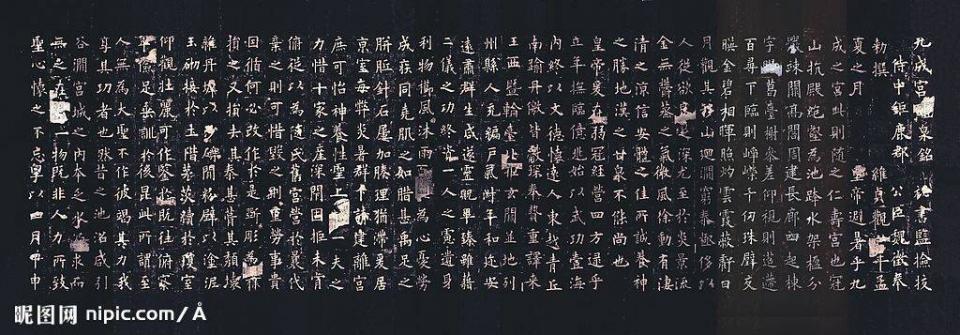 九成宫泉銘秘書監檢校
侍中鉅鹿郡公臣魏徵奉
勑撰
維貞觀年孟
夏之月皇帝避暑乎九
成之宫此則隨之仁壽宫也冠
山抗殿絶壑為池跨水架楹分
巖竦闕高閣周建長廊四起棟
宇葛臺榭參差仰視則迢遰
百尋下臨則崢嶸千仞珠壁交
暎金碧相暉照灼雲霞蔽虧日
月觀其移山迴澗窮泰極侈以
人從欲深尤至於炎景流
金無鬱蒸之氣微風徐動有淒
清之涼信安體之佳所誠養神
之勝地漢之甘泉不能尚也
皇帝爰在弱冠經營四方逮乎
立年撫臨億兆始以武功壹海
内終以文德懷遠人東越青丘
南踰丹徼皆獻琛奉贄重譯來
王西曁輪臺北拒玄闕並地列
州縣人充編戸氣淑年和迩安
遠肅群生咸遂靈貺畢臻雖藉
二儀之功終資一人之慮遺身
利物櫛風沐雨為心憂勞
成疾同堯肌之如腊甚禹足之
胼胝針石屢加腠理猶滯爰居
京室每弊炎暑群下請建離宫
庶可怡神養性聖上一夫之
力惜十家之産深閉固拒未肯
俯從以為隨氏舊宫營於曩代
棄之則可惜毀之則重勞事貴
因循何必改作於是斵彫為樸
損之又損去其泰甚葺其頽壞
雜丹墀以沙礫間粉壁以塗泥
玉砌接於土階茅茨續於瓊室
仰觀壯麗可作鑒於既往俯察
儉足垂訓於後昆此所謂至
人無為大聖不作彼竭其力我
享其功者也然昔之池沼咸引
谷澗宫城之内本乏水求而
無之在一物既非人力所致
聖心懷之不忘粤以四月甲申
昵图网 nipic.com/Å